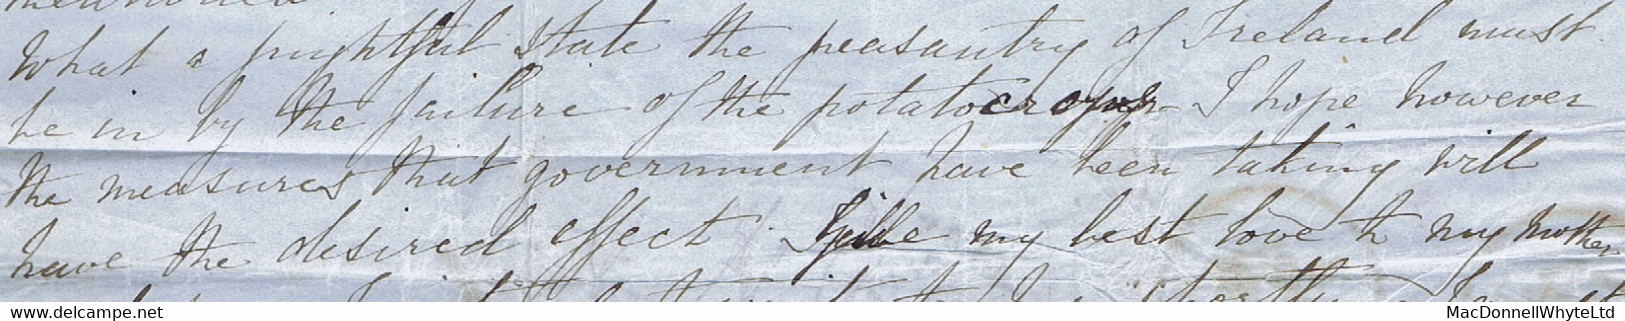 What a frightful state the peasantry of Ireland must
be in by the failure of the potato crops I hope however
the measures that government have been taking will
have the desired effect. Give my best love to my mother
www.delcampe.net
MacDonnellWhyteLtd